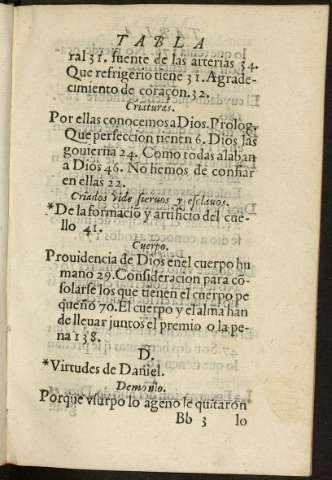 TABLA
ral 31. fuente de las arterias 34.
Que refrigerio tiene 31. Agrade-
cimiento de coraçon. 32.
Criaturas.
Por ellas conocemos a Dios. Prolog.
Que perfeccion tienen 6. Dios las
gouierna 24. Como todas alaban
a Dios 46. No hemos de confiar
en ellas 22.
Criados vide sieruos y esclauos.
*De la formaciō y artificio del cue
llo 41.
Cuerpo.
Prouidencia de Dios en el cuerpo hu
mano 29. Consideracion para cō-
solarse los que tienen el cuerpo pe
queño 70. El cuerpo y el alma han
de lleuar juntos el premio o la pe-
na 138.
D.
*Virtudes de Daniel.
Demonio.
Porque vsurpo lo ageno le quitaron
Bb 3 lo